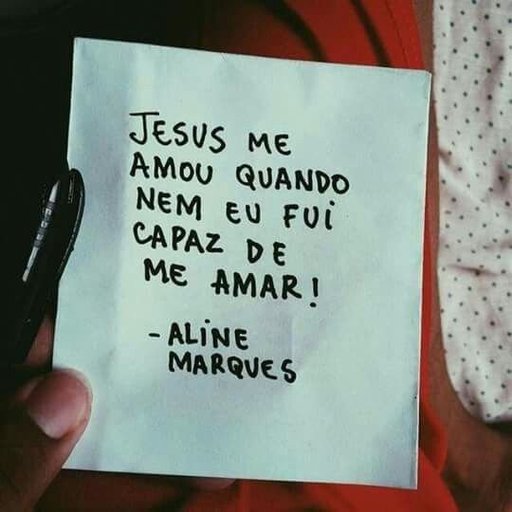 JESUS ME
AMOU QUANDO
NEM EU FUi
CAPAZ DE
ME AMAR!
- ALiNE
MARQUES